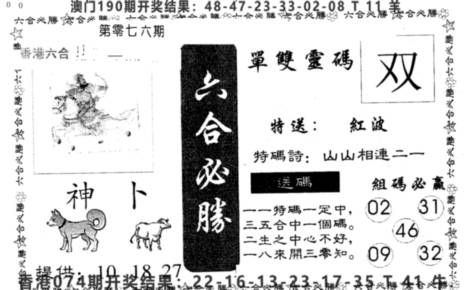 澳门190期开奖结果：48-47-23-33-02-08 T 11 羊
六合必勝
第零七六期
香港六合
神卜
提供：10 18 27
六合必勝
單雙靈碼
双
特送：紅波
特碼詩：山山相連二一
送碼
一一特碼一定中，
三五合中一個碼。
二生之中心不好，
一八來開三零知。
組碼必贏
02 31
46
09 32
香港074期开奖结果：22-16-13-23-17-35 T 41 牛